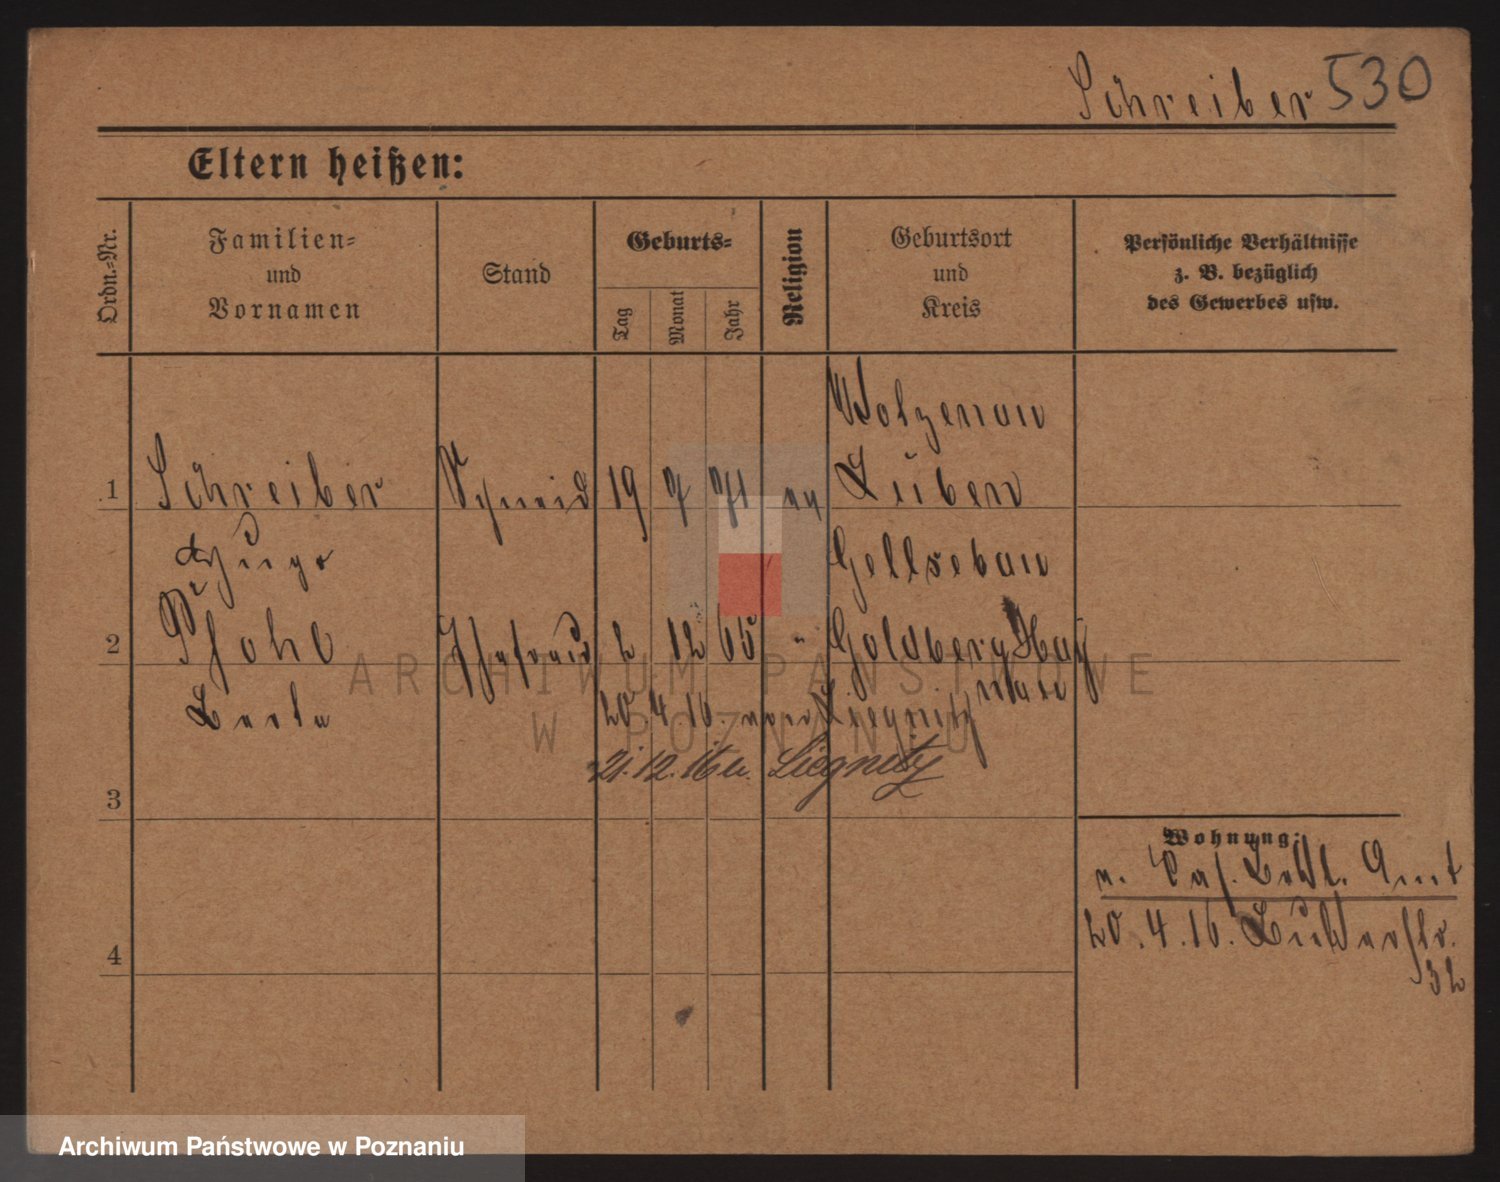 Schreiber 530
Eltern heißen:
Ordn.-Nr.
Familien- und Vornamen
Stand
Geburts-
Tag
Monat
Jahr
Religion
Geburtsort und Kreis
Persönliche Verhältnisse
z. B. bezüglich
des Gewerbes usw.
Wolzenau
1 Schreiber Schmied 19 7 71 ev Lüben
Hugo
2 12 65 " Goldberg Hay
nau
20 4. 16. von Liegnitz
21. 12. 16 u. Liegnitz
3
Wohnung:
20. 4. 16.
32
4
ARCHIWUM PAŃSTWOWE
W POZNANIU
Archiwum Państwowe w Poznaniu